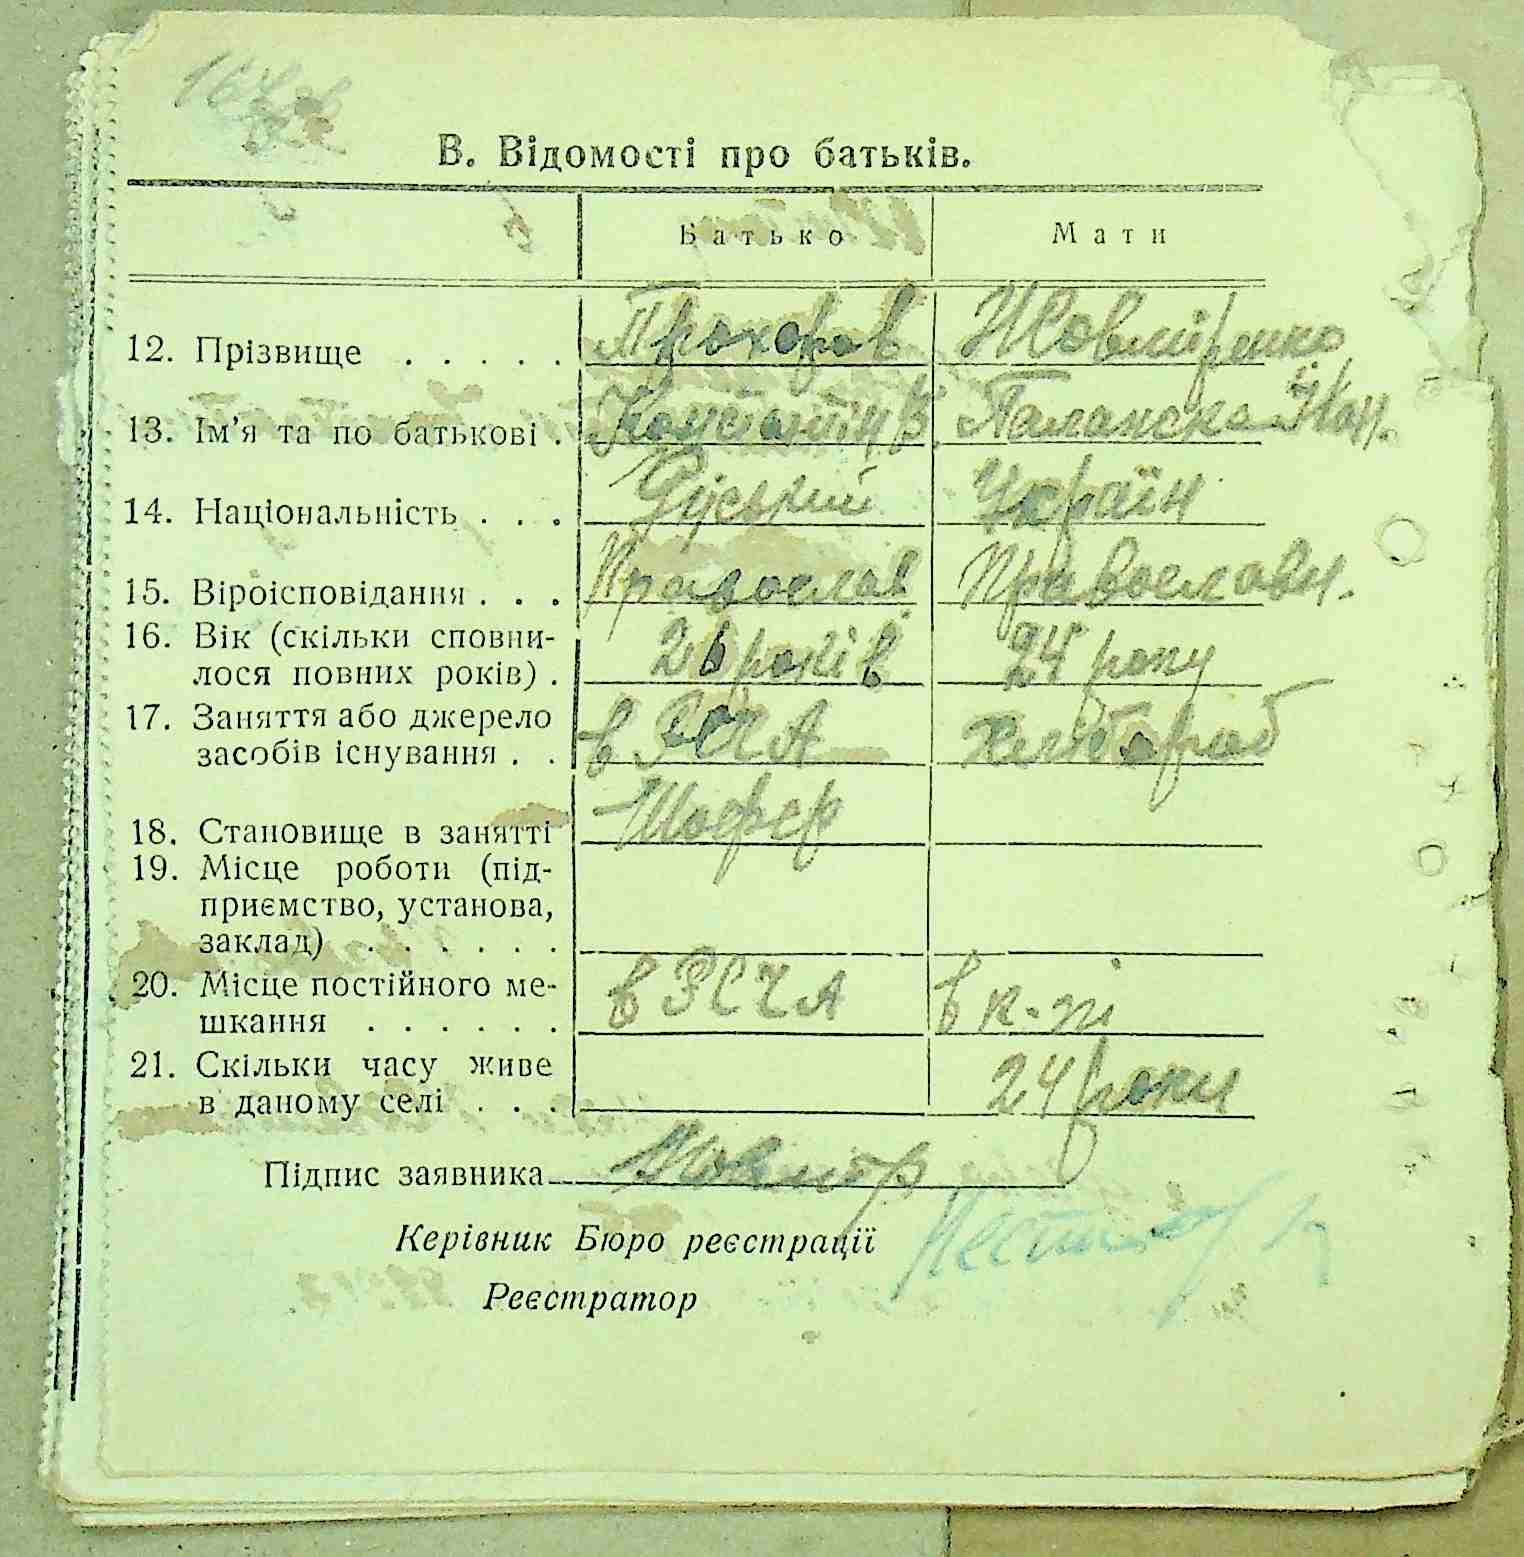 В. Відомості про батьків.
Батько Мати
12. Прізвище . . . . . Прохоров Жовмиренко
13. Ім'я та по батькові . Констянтін В. Паланска Кон.
14. Національність . . . Руський Україн
15. Віроісповідання . . . Православ Православн.
16. Вік (скільки сповни-
лося повних років) . 26 років 24 року
17. Заняття або джерело
засобів існування . . в РСЧА хлібороб
18. Становище в занятті Шофер
19. Місце роботи (під-
приємство, установа,
заклад) . . . . . .
20. Місце постійного ме-
шкання . . . . . . в РСЧА в к-ті
21. Скільки часу живе
в даному селі . . . 24 роки
Підпис заявника
Керівник Бюро реєстрації
Реєстратор